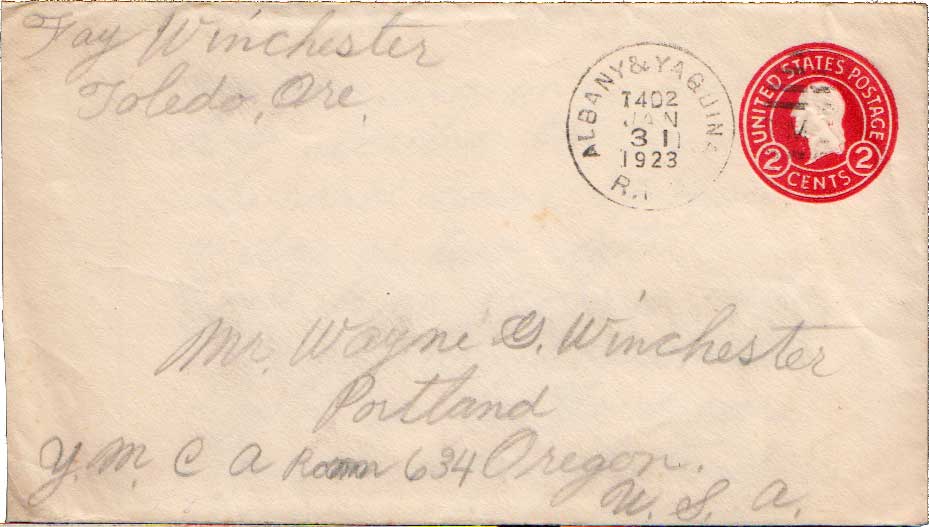 Fay Winchester
Toledo, Ore.
ALBANY & YAQUINA
T402
JAN
31
1923
R.P.
UNITED STATES POSTAGE
2 CENTS 2
Mr. Wayne G. Winchester
Portland
Y. M. C A Room 634 Oregon.
U. S. A.